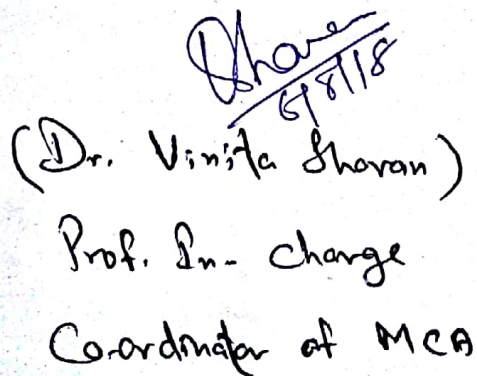 Sharan
6/8/18
(Dr. Vinita Sharan)
Prof. In- charge
Co-ordinator of MCA